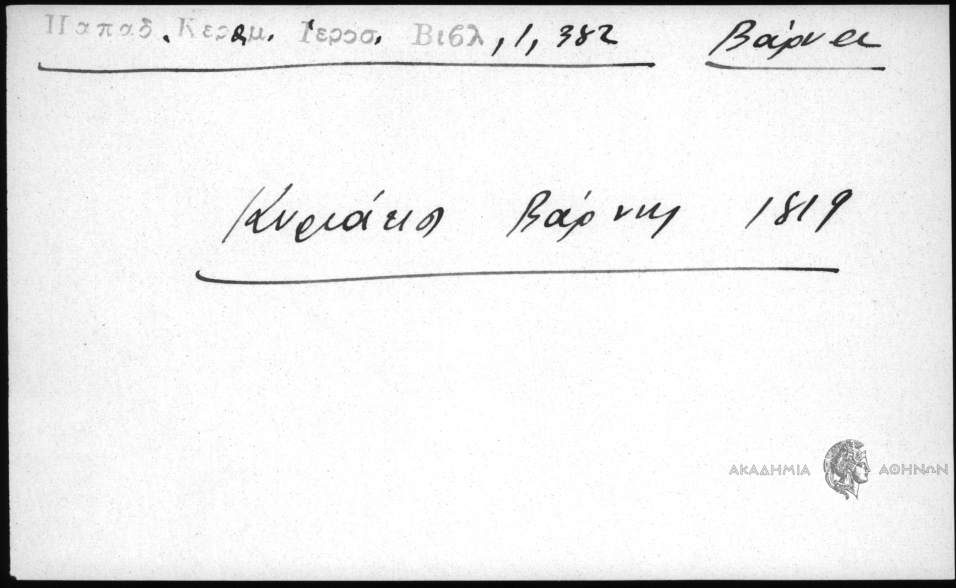 Παπαδ. Κεραμ. Ιεροσ. Βιβλ, 1, 382 Βάρνα
Βάρνης 1819
ΑΚΑΔΗΜΙΑ ΑΘΗΝΩΝ